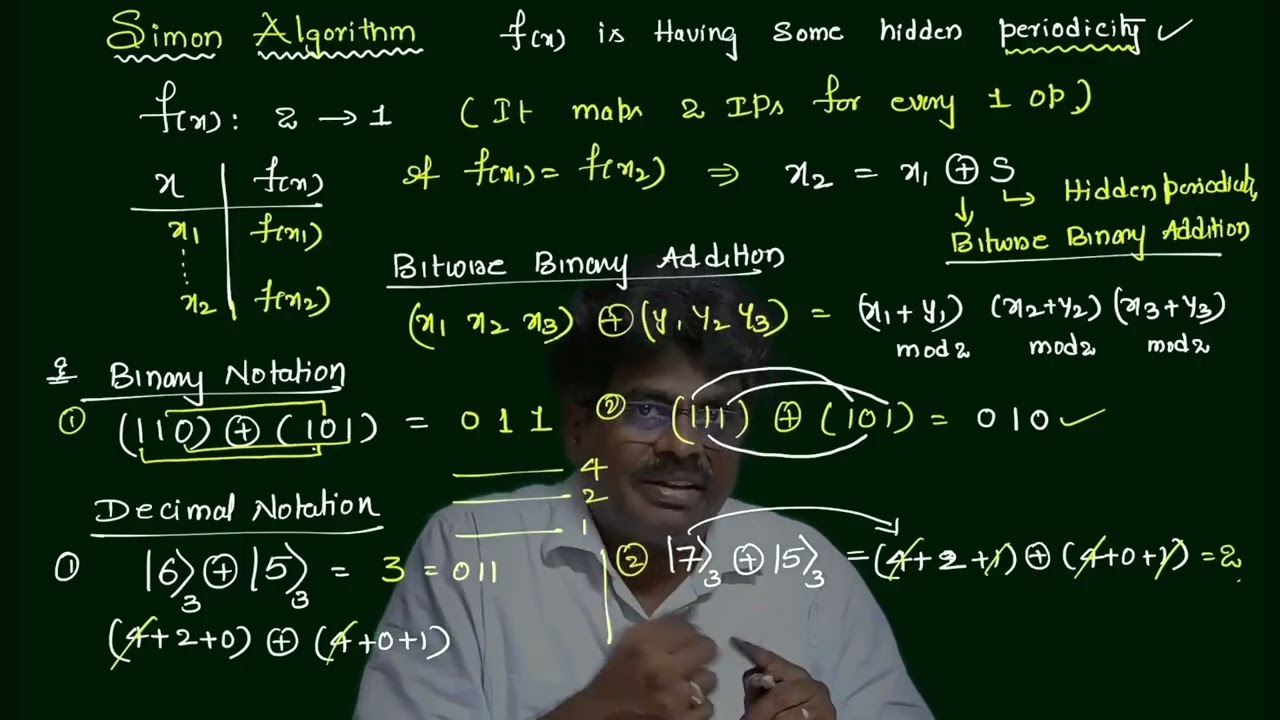 Simon Algorithm f(x) is Having Some hidden periodicity ✓
f(x): 2 → 1 (It maps 2 IPs for every 1 OP)
x f(x)
x₁ f(x₁)
⋮
x₂ f(x₂)
If f(x₁) = f(x₂) ⇒ x₂ = x₁ ⊕ S
↳ Hidden periodicity
↓
Bitwise Binary Addition
Bitwise Binary Addition
(x₁ x₂ x₃) ⊕ (y₁ y₂ y₃) = (x₁+y₁) (x₂+y₂) (x₃+y₃)
mod2 mod2 mod2
Binary Notation
① (110) ⊕ (101) = 011
② (111) ⊕ (101) = 010 ✓
4
2
1
Decimal Notation
① |6⟩₃ ⊕ |5⟩₃ = 3 = 011
(4+2+0) ⊕ (4+0+1)
② |7⟩₃ ⊕ |5⟩₃ = (4+2+1) ⊕ (4+0+1) = 2